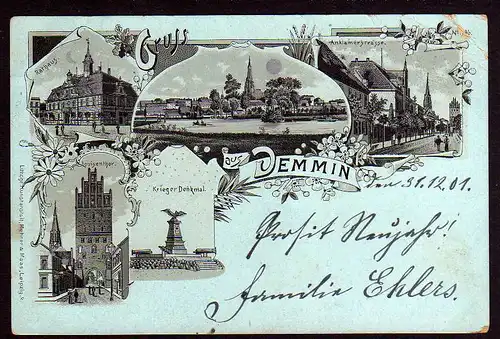 Gruss
aus DEMMIN
Rathaus.
Anklamerstrasse.
Luisenthor.
Krieger Denkmal.
den 31.12.01.
Prosit Neujahr!
Familie Ehlers.